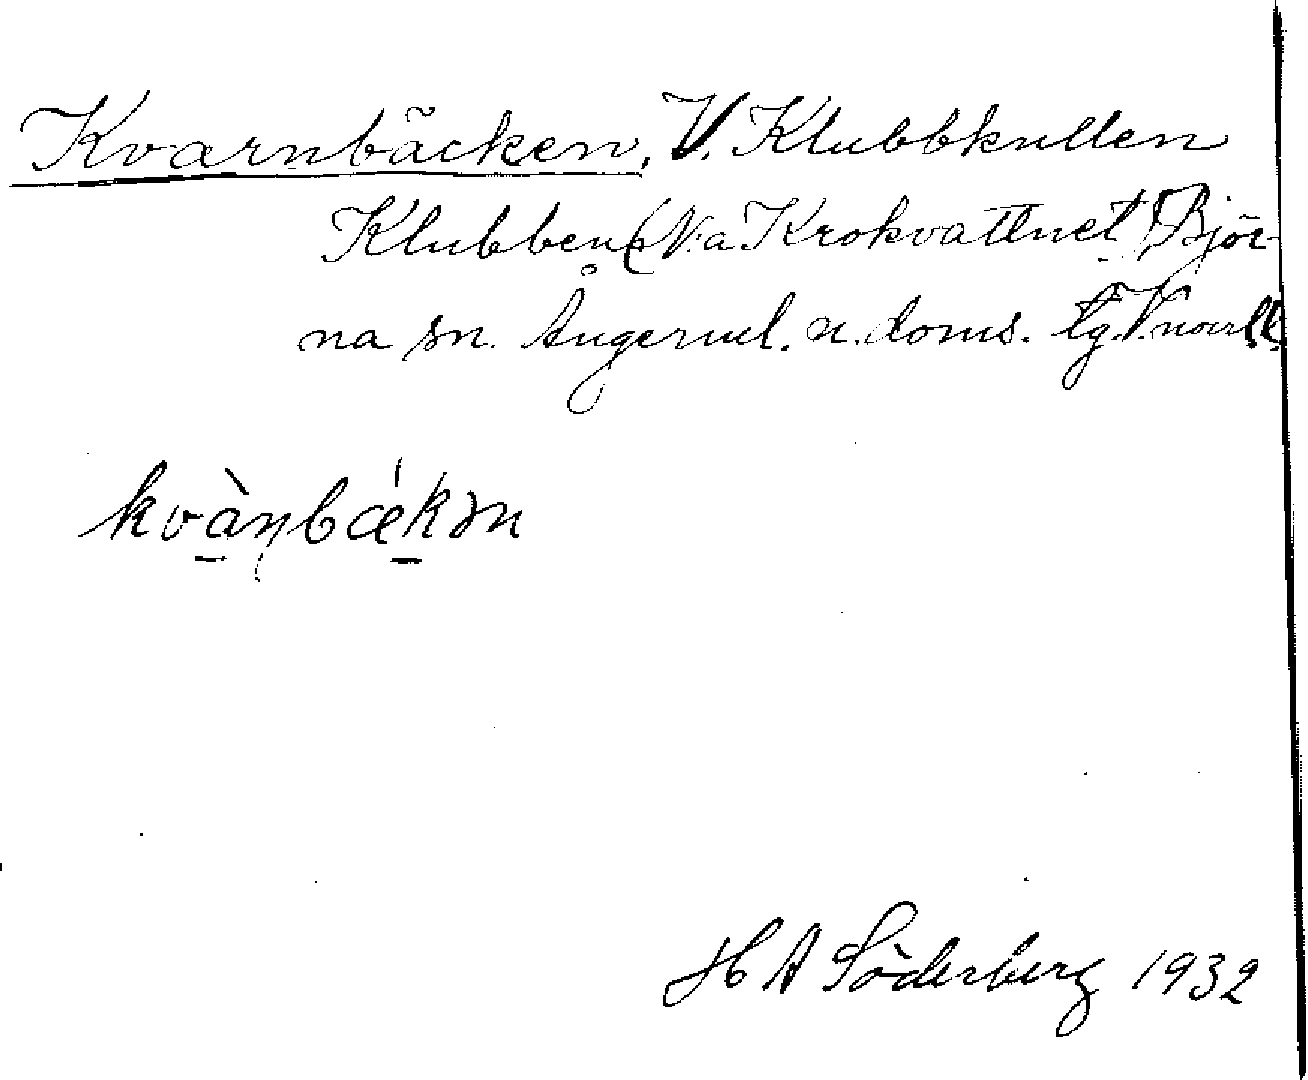 Kvarnbäcken. V. Klubbkullen
Klubben (N.a Krokvattnet) Björ-
na sn. Ångerml. n. doms. tg. V.norrl.l.
kvànbǽkən
H A Söderberg 1932